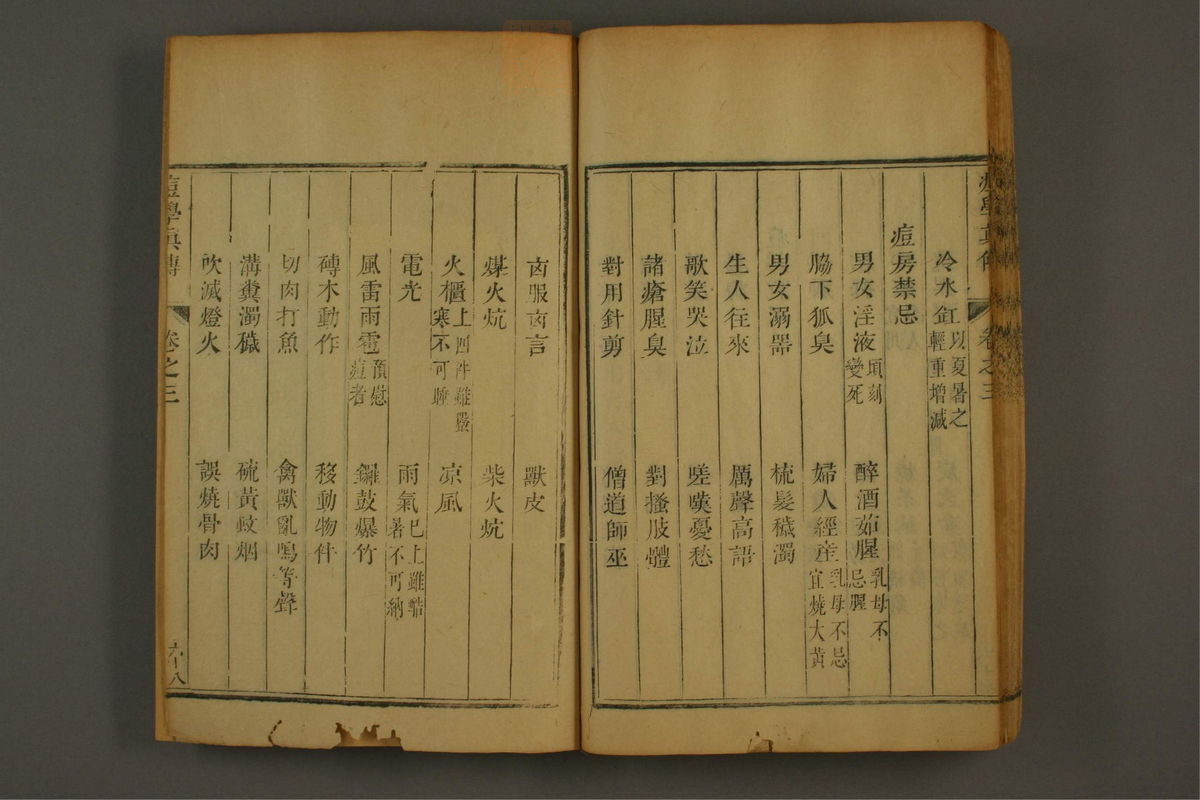 冷水缸以夏暑之輕重增減
痘房禁忌
男女淫液頃刻變死 醉酒茹腥乳母不忌腥
脇下狐臭 婦人經產乳母不忌宜燒大黃
男女溺器 梳髮穢濁
生人往來 厲聲高語
歌笑哭泣 嗟嘆憂愁
諸瘡腥臭 對搔肢體
對用針剪 僧道師巫
卷之三
凶服凶言 獸皮
煤火炕 柴火炕
火櫃上四件雖嚴寒不可睡 凉風
電光 雨氣已上雖酷暑不可納
風雷雨雹預慰痘者 鑼鼓爆竹
磚木動作 移動物件
切肉打魚 禽獸亂鳴等聲
溝糞濁穢 硫黃蚊烟
吹滅燈火 誤燒骨肉
痘學真傳 卷之三 六十八